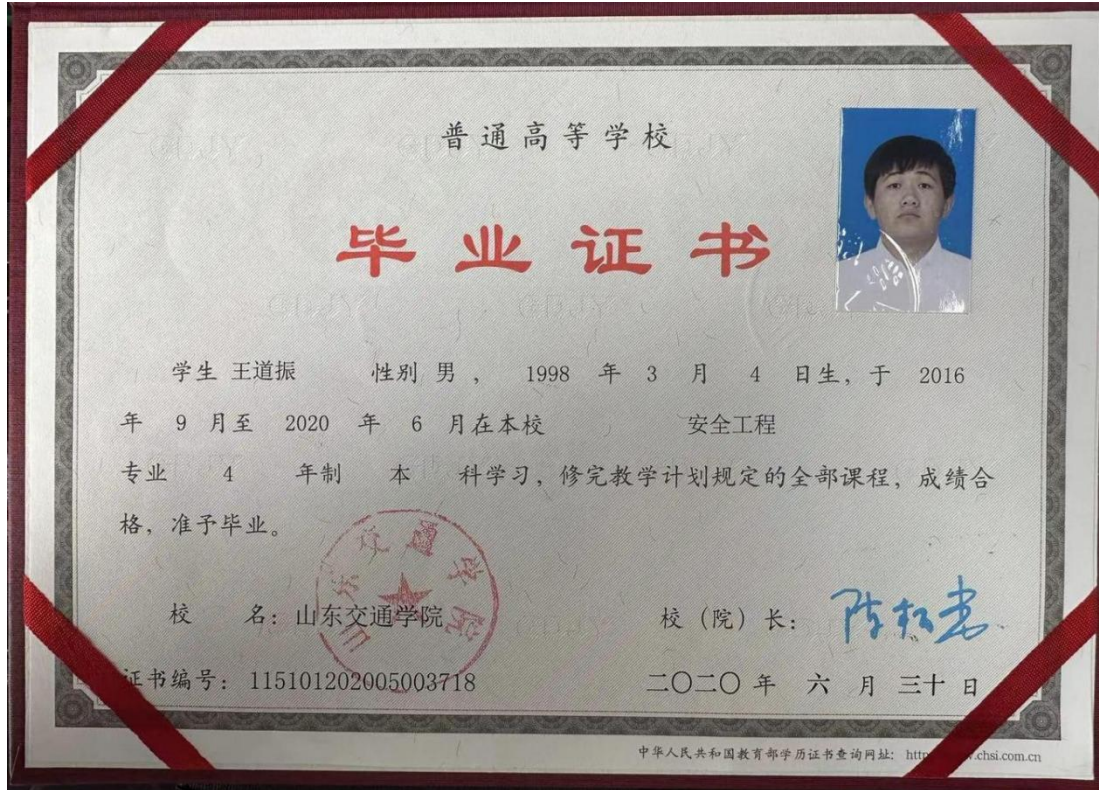 普通高等学校
毕业证书
学生 王道振 性别 男 ， 1998 年 3 月 4 日生，于 2016
年 9 月至 2020 年 6 月在本校 安全工程
专业 4 年制 本 科学习，修完教学计划规定的全部课程，成绩合
格，准予毕业。
山东交通学院
校 名：山东交通学院 校（院）长：
证书编号：115101202005003718 二〇二〇 年 六 月 三十 日
中华人民共和国教育部学历证书查询网址： http .chsi.com.cn